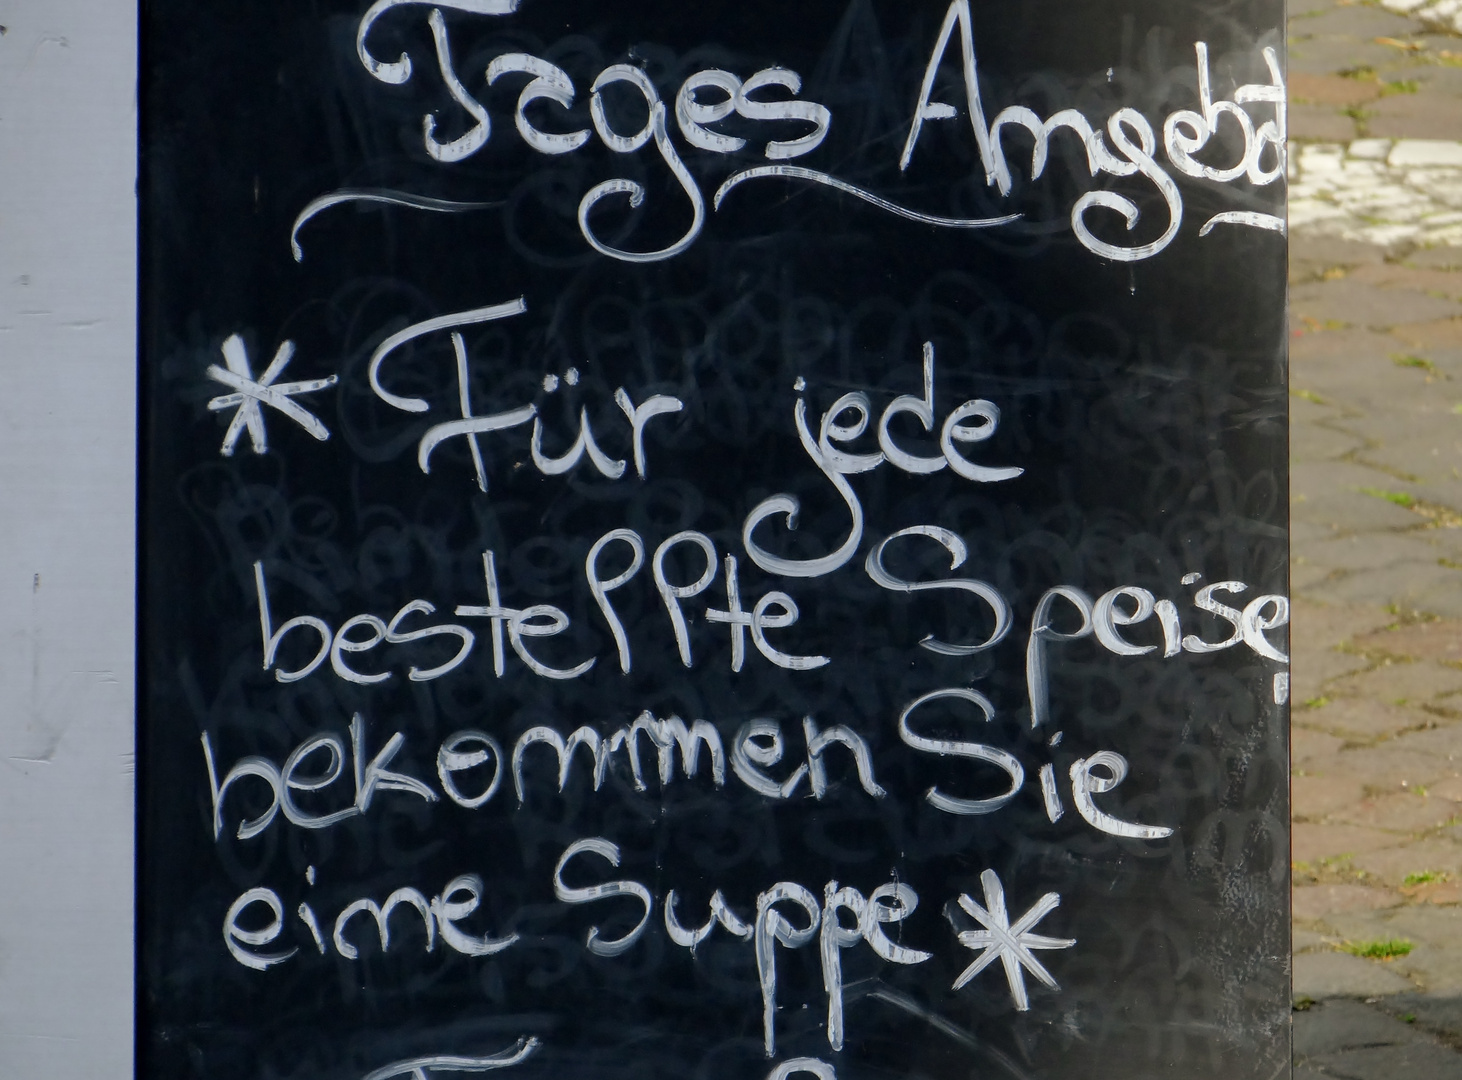 Tages Angebot
* Für jede
bestellte Speise
bekommen Sie
eine Suppe *